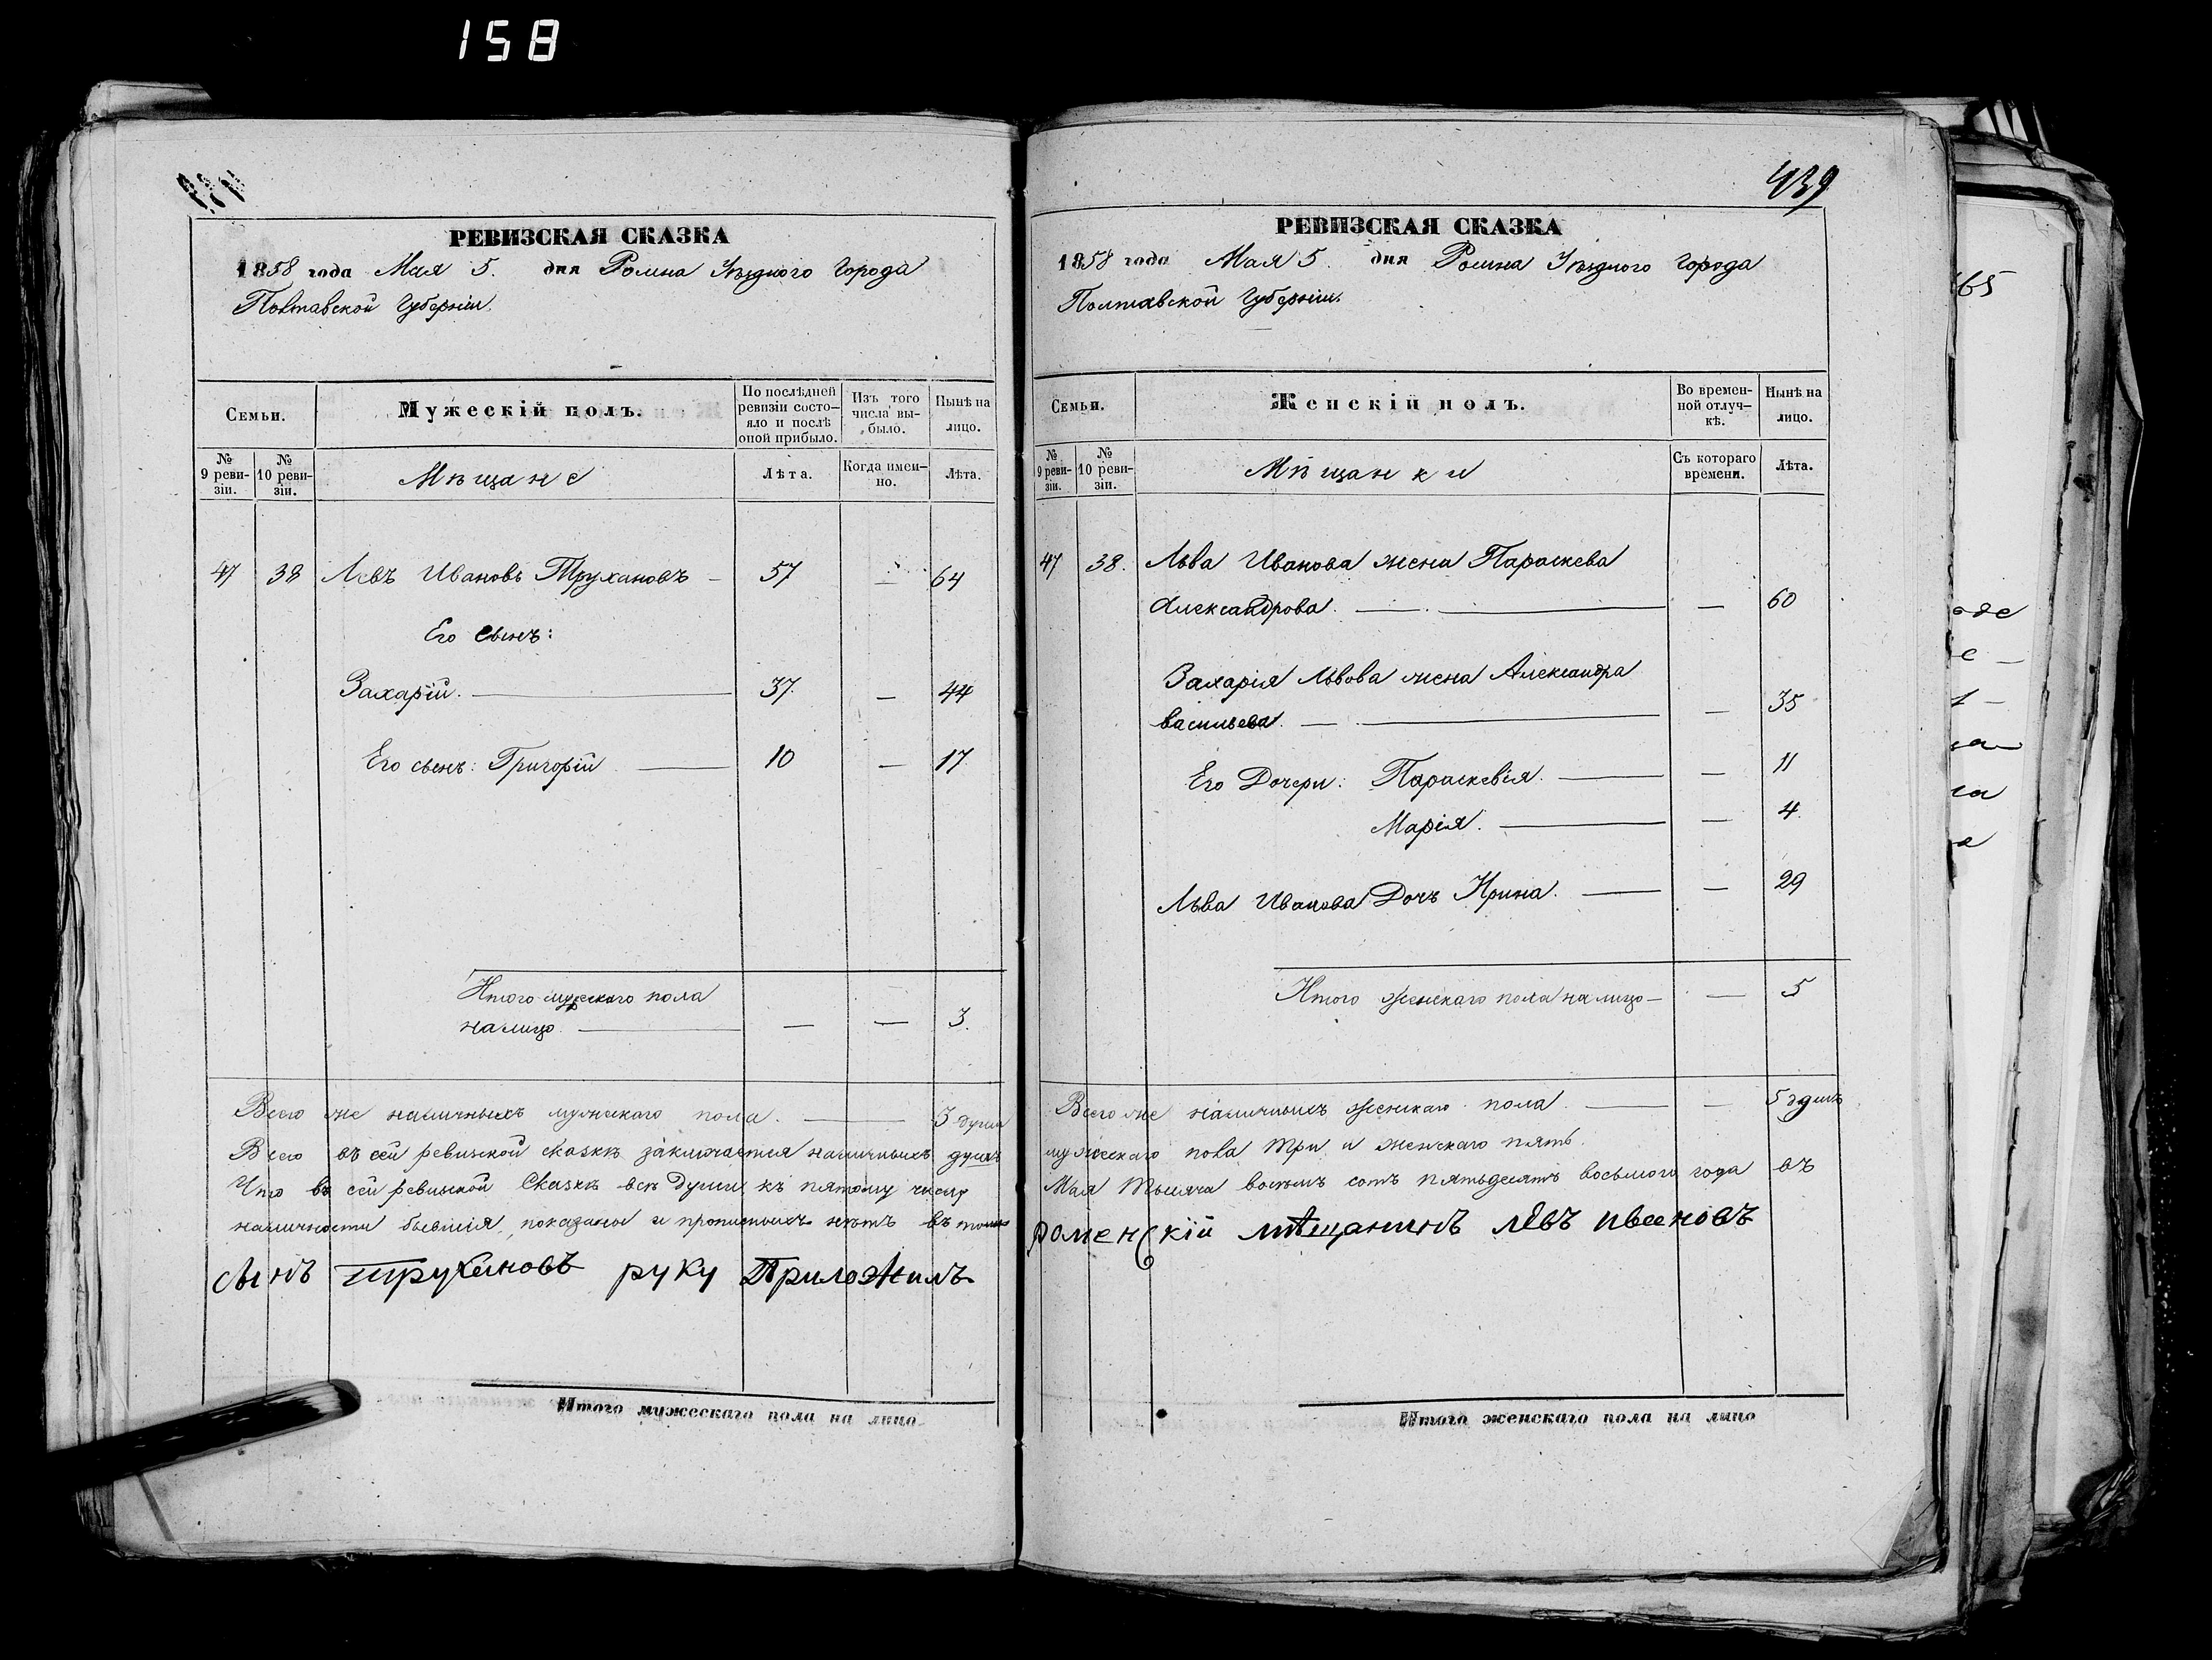 158
РЕВИЗСКАЯ СКАЗКА
1858 года Мая 5. дня Ромна Уѣзднаго Города
Полтавской Губерніи.
Семьи.
Мужескій полъ.
По послѣдней ревизіи состо-яло и послѣ оной прибыло.
Изъ того числа вы-было.
Нынѣ на лицо.
№ 9 реви-зіи.
№ 10 реви-зіи.
Мѣщане
Лѣта.
Когда имен-но.
Лѣта.
47 38 Левъ Ивановъ Трухановъ — 57 — 64
Его сынъ:
Захарій. — 37. — 44
Его сынъ: Григорій — 10 — 17
Итого мужескаго пола
налицо — — — 3.
Всего же наличныхъ мужескаго пола. — 3 души
Всего въ сей ревизской сказкѣ заключается наличныхъ душъ
Что въ сей ревизской Сказкѣ всѣ Души къ пятому числу
наличности бывшія, показаны и прописныхъ нѣтъ въ томъ
сынъ трухановъ руку Приложилъ
Итого мужескаго пола на лицо
439
РЕВИЗСКАЯ СКАЗКА
1858 года Мая 5. дня Ромна Уѣзднаго города
Полтавской Губерніи.
Семьи.
Женскій полъ.
Во времен-ной отлуч-кѣ.
Нынѣ на лицо.
№ 9 реви-зіи.
№ 10 реви-зіи.
Мѣщанки
Съ котораго времени.
Лѣта.
47 38. Льва Иванова жена Параскева
Александрова. — — 60
Захарія Львова жена Александра
васильева. — — 35
Его Дочери: Параскевія. — — 11
Марія. — — 4.
Льва Иванова Дочь Ирина. — — 29
Итого женскаго пола налицо — — 5
Всего же наличныхъ женскаго пола. — — 5 душъ
мужескаго пола три и женскаго пять.
Мая тысяча восемь сотъ пятьдесятъ восьмого года въ
роменскій мѣщанинъ левъ ивановъ
Итого женскаго пола на лицо
65